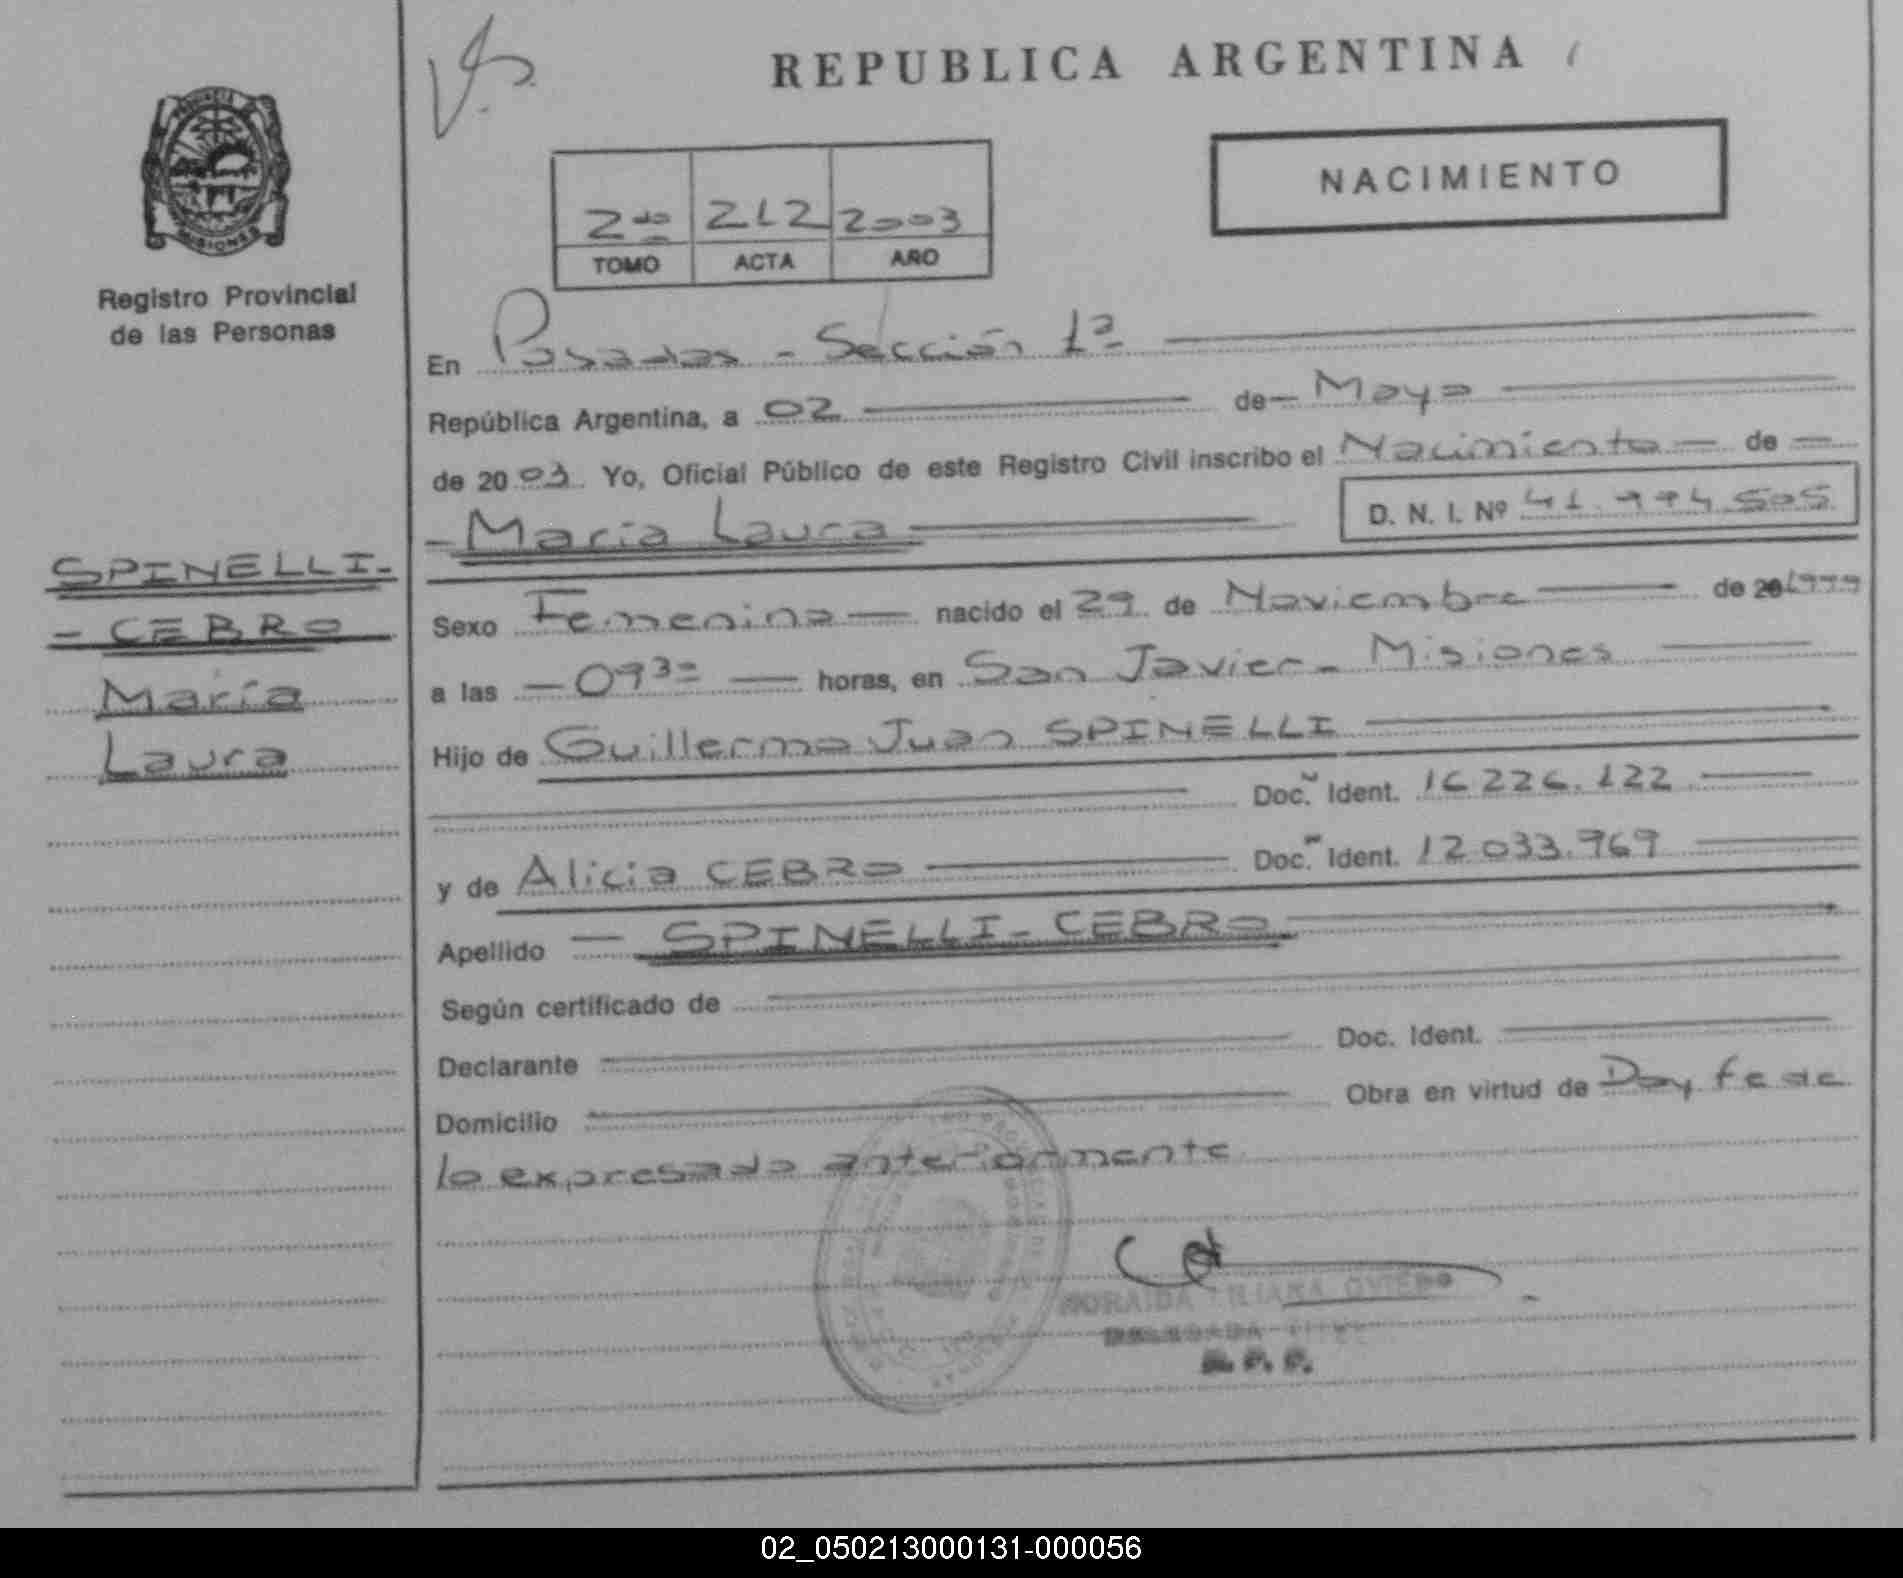 REPUBLICA ARGENTINA
NACIMIENTO
2do 212 2003
TOMO ACTA AÑO
PROVINCIA
MISIONES
Registro Provincial
de las Personas
En Posadas - Sección 1ª
República Argentina, a 02 de Mayo
de 2003. Yo, Oficial Público de este Registro Civil inscribo el Nacimiento de
María Laura D. N. I. Nº 41.994.505
SPINELLI-
- CEBRO
María
Laura
Sexo Femenino nacido el 29 de Noviembre de 20 1999
a las 09 30 horas, en San Javier - Misiones
Hijo de Guillermo Juan SPINELLI
Doc. Ident. 16.226.122
y de Alicia CEBRO Doc. Ident. 12.033.969
Apellido SPINELLI - CEBRO
Según certificado de
Declarante Doc. Ident.
Domicilio Obra en virtud de Doy fe de
lo expresado anteriormente
OVIEDO
DELEGADA
R. P. P.
02_050213000131-000056